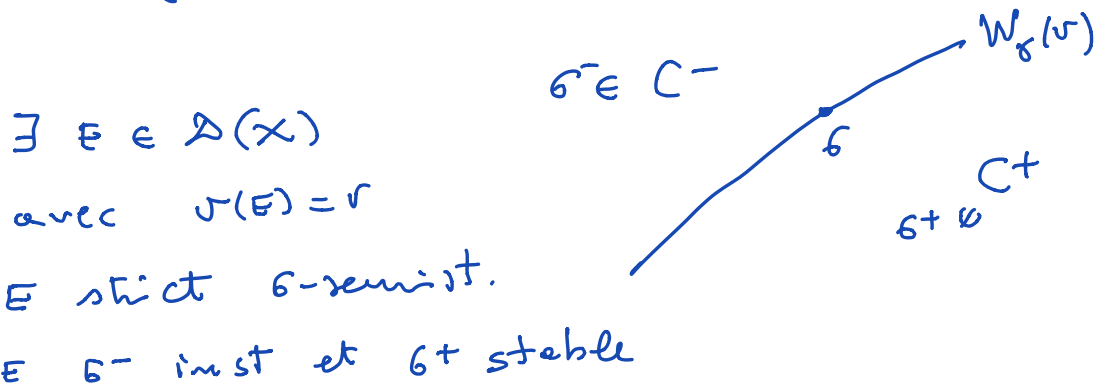 W_γ(v)
σ⁻ ∈ C⁻
σ
∃ E ∈ D(X)
C⁺
avec v(E) = v
σ⁺ ∈
E strict σ-semist.
E σ⁻ inst et σ⁺ stable